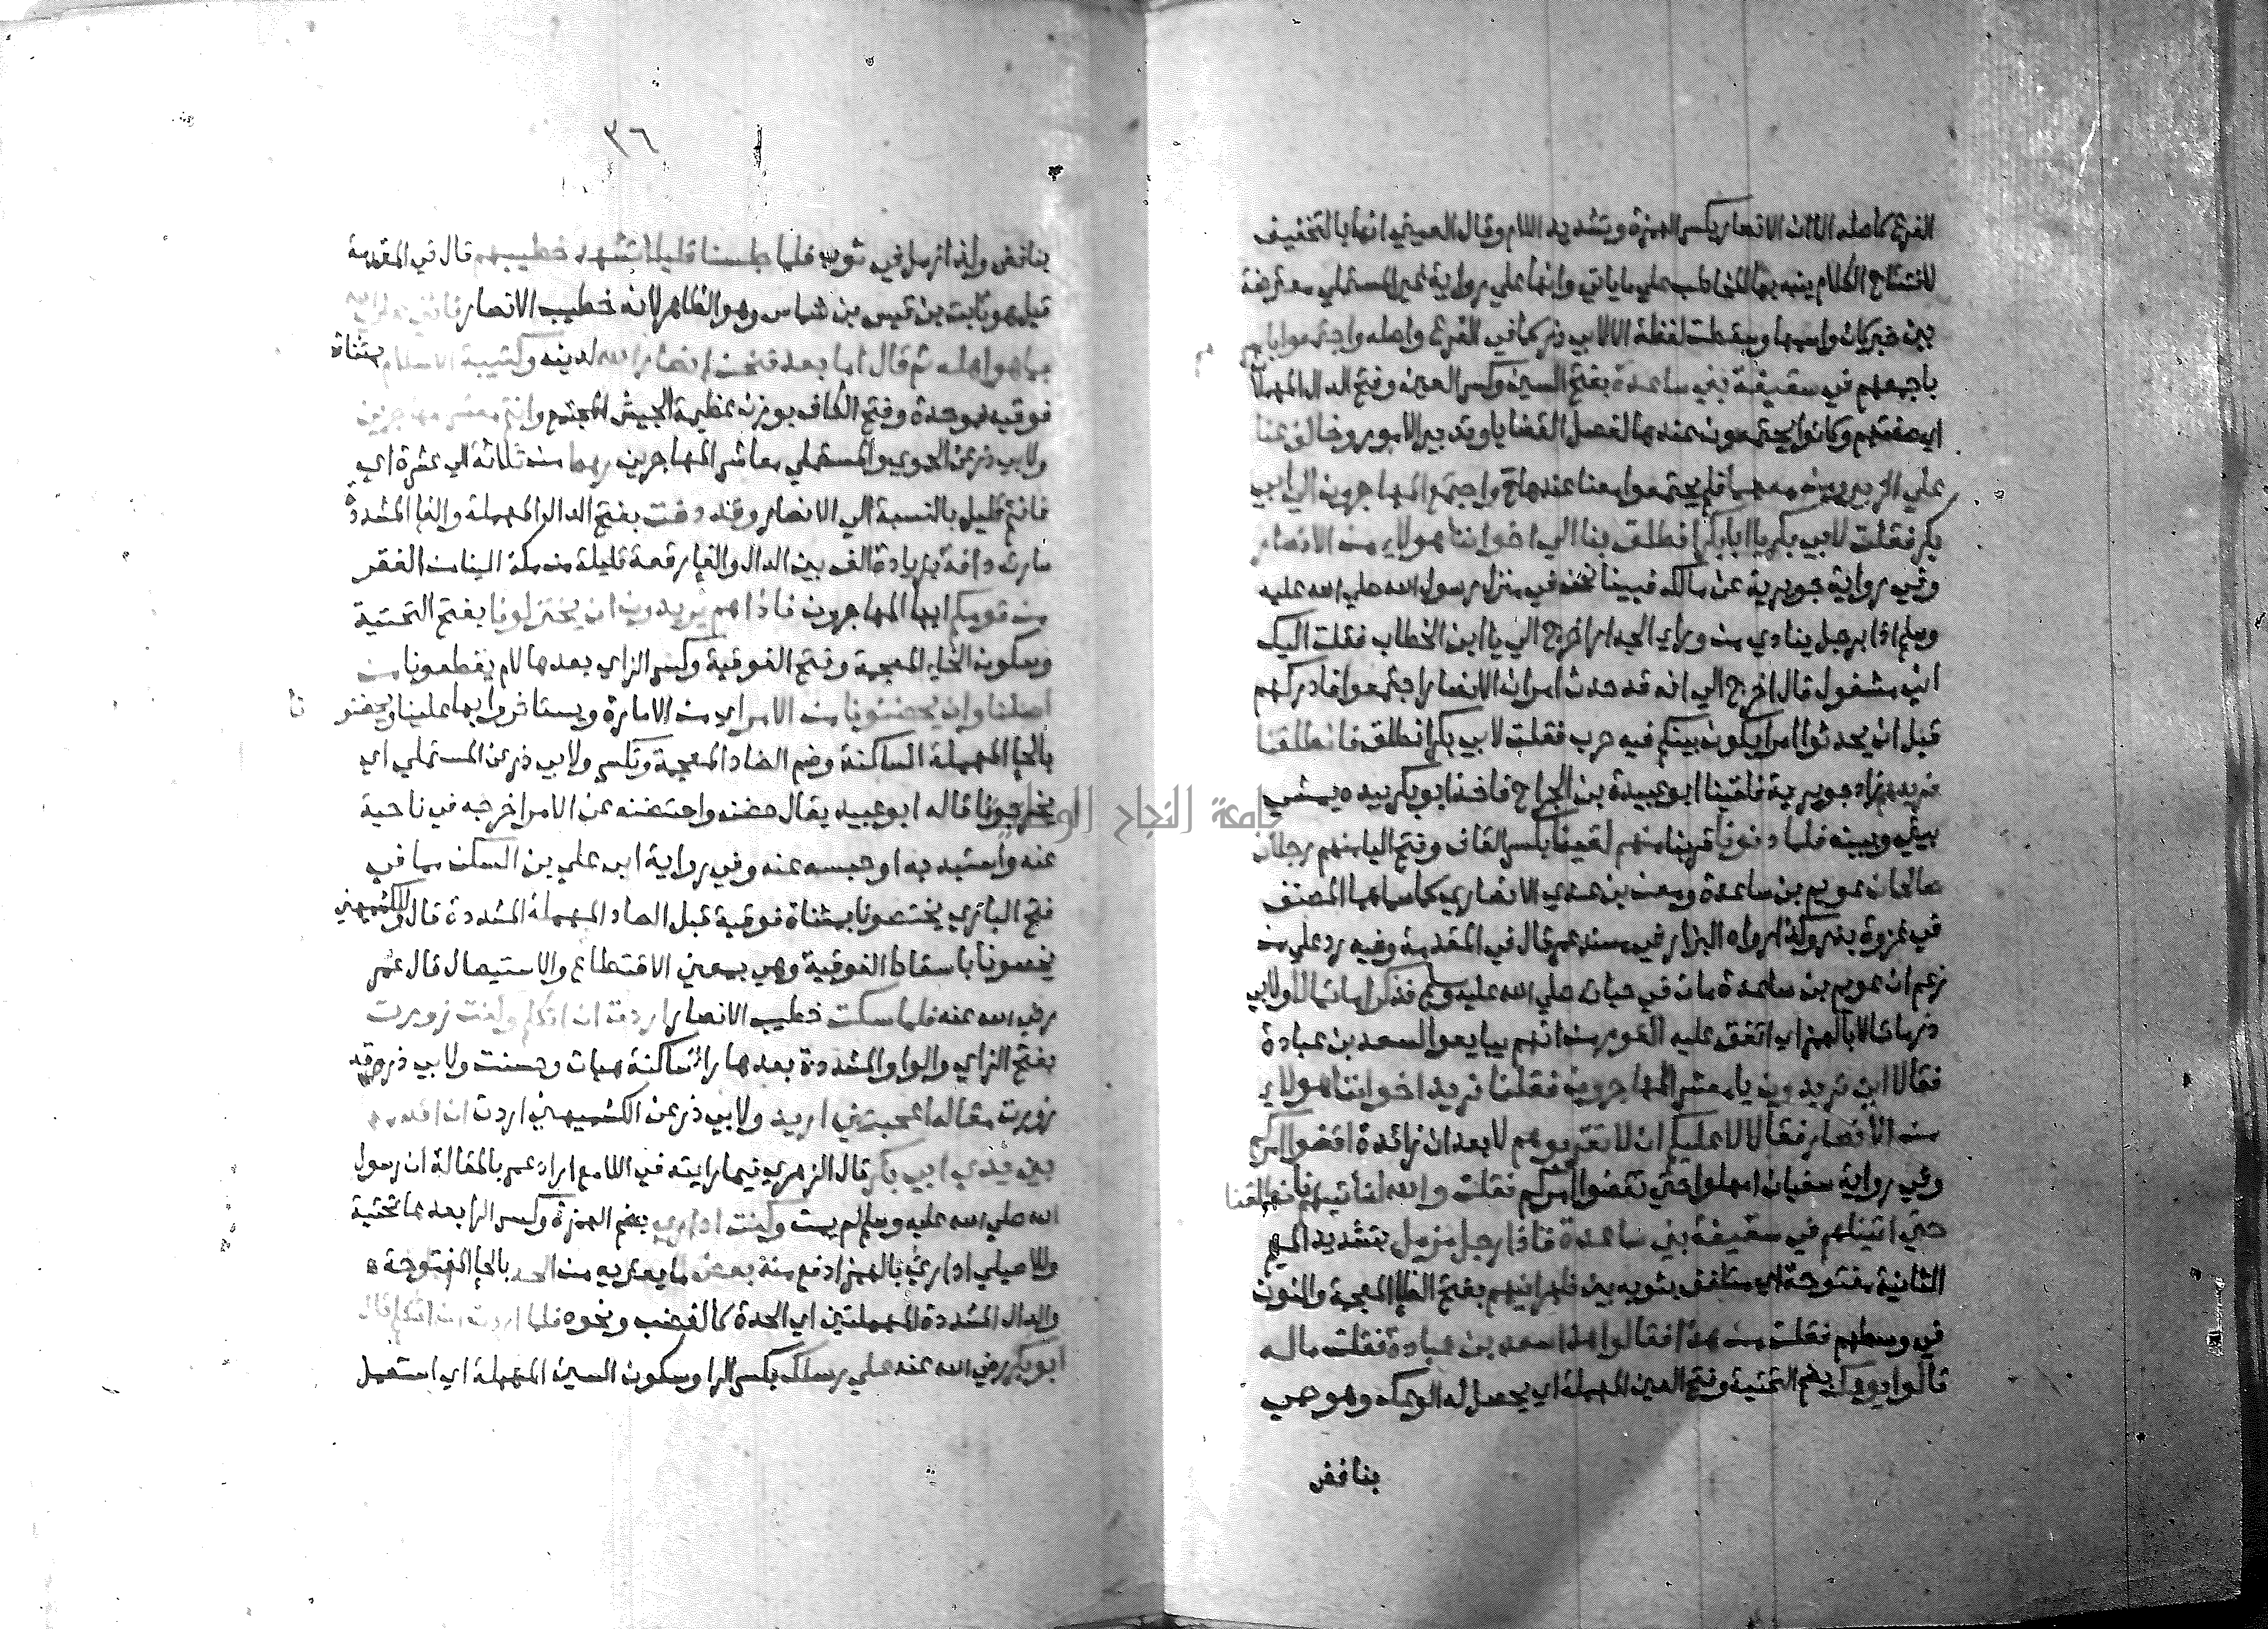 الفرع كاصله الا ان الانصار بكسر الهمزة وتشديد اللام وقال العيني انها بالتخفيف
لافتتاح الكلام ينبه بها المخاطب علي ما ياتي وانها علي رواية غير المستملي معترضة
بين خبر كان واسمها وسقطت لفظة الا لابي ذر كما في الفرع واصله واجتمعوا
باجمعهم في سقيفة بني ساعدة بفتح السين وكسر العين وفتح الدال المهملا
اي صفتهم وكانوا يجتمعون عندها لفصل القضايا وتدبير الامور وخالف عنا
علي والزبير ومن معهما فلم يجتمعوا معنا عندها واجتمع المهاجرون الي ابي
بكر فقلت لابي بكر يا ابا بكر انطلق بنا الي اخواننا هولاء من الانصار
وفي رواية جويرية عن مالك فبينا نحن في منزل رسول الله صلي الله عليه
وسلم اذا برجل ينادي من وراء الجدار اخرج الي يا ابن الخطاب فقلت اليك
اني مشغول قال اخرج الي انه قد حدث امر ان الانصار اجتمعوا فادركهم
قبل ان يحدثوا امرا يكون بينكم فيه حرب فقلت لابي بكر انطلق فانطلقنا
نريدهم زاد جويرية فلقينا ابو عبيدة بن الجراح فاخذ ابو بكر بيده يمشي
بيني وبينه فلما دنونا قربنا منهم لقينا بكسر القاف وفتح اليا منهم رجلان
صالحان عويم بن ساعدة ومعن بن عدي الانصاري كما سماهما المصنف
في غزوة بدر وكذا رواه البزار في مسند عمر قال في المقدمة وفيه رد علي من
زعم ان عويم بن ساعدة مات في حياته صلي الله عليه وسلم فذكرا ما تمالا ولابي
ذر ما تمالا بالهمز اي اتفق عليه القوم من انهم يبايعوا لسعد بن عبادة
فقالا اين تريدون يا معشر المهاجرين فقلنا نريد اخواننا هولاء
من الانصار فقالا لا عليكم ان لا تقربوهم لا بعد ان زائدة اقضوا امركم
وفي رواية سفيان امهلوا حتي تقضوا امركم فقلت والله لناتينهم فانطلقنا
حتي اتيناهم في سقيفة بني ساعدة فاذا رجل مزمل بتشديد الميم
الثانية مفتوحة اي متلفف بثوبه بين ظهرانيهم بفتح الظا المعجمة والنون
في وسطهم فقلت من هذا فقالوا هذا سعد بن عبادة فقلت ماله
قالوا يوعك بضم التحتية وفتح العين المهملة اي يحصل له الوعك وهو حمي
بنافض
٣٦
بنافض ولذا تزمل في ثوب فلما جلسنا قليلا تشهد خطيبهم قال في المقدمة
قيل هو ثابت بن قيس بن شماس وهو الظاهر لانه خطيب الانصار فاثني علي الله
بما هو اهله ثم قال اما بعد فنحن انصار الله لدينه وكتيبة الاسلام بمثناة
فوقيه فموحدة وفتح الكاف بوزن عظيمة الجيش المجتمع وانتم معشر مهاجرين
ولابي ذر عن الحموي والمستملي معاشر المهاجرين رهط من ثلاثة الي عشرة اي
فانتم قليل بالنسبة الي الانصار وقد دفت بفتح الدال المهملة والفا المشددة
سارت دافة بزيادة الف بين الدال والفا رفعة قليلة من مكة الينا من الفقر
من قومكم ايها المهاجرون فاذا هم يريدون ان يختزلونا بفتح التحتية
وسكون الخاء المعجمة وفتح الفوقية وكسر الزاي بعدها لام يقطعونا من
اصلنا وان يحضنونا من الامر اي من الامارة ويستاثروا بها علينا ويحضنو نا
بالحا المهملة الساكنة وضم الضاد المعجمة وتكسر ولابي ذر عن المستملي اي
يخرجونا قاله ابو عبيد يقال حضنه واحتضنه عن الامر اخرجه في ناحية
عنه واستبد به او حبسه عنه وفي رواية ابي علي بن السكن مما في
فتح الباري يختصونا بمثناة فوقية قبل الصاد المهملة المشددة قال وللكشميهني
يخصونا باسقاط الفوقية وهي بمعني الاقتطاع والاستيصال قال عمر
رضي الله عنه فلما سكت خطيب الانصار اردت ان اتكلم وكنت زورت
بفتح الزاي والواو المشددة بعدها را ساكنة هيات وحسنت ولابي ذر وقد
زورت مقالة اعجبتني اريد ولابي ذر عن الكشميهني اردت ان اقدمها
بين يدي ابي بكر قال الزهري فيما رايته في اللامع اراد عمر بالمقالة ان رسول
الله صلي الله عليه وسلم لم يمت وكنت اداري بضم الهمزة وكسر الرا بعدها تحتية
وللاصيلي اداري بالهمز ادفع منه بعض ما يعتريه من الحد بالحا المفتوحة
والدال المشددة المهملتين اي الحدة كالغضب ونحوه فلما اردت ان اتكلم قال
ابو بكر رضي الله عنه علي رسلك بكسر الرا وسكون السين المهملة اي استعمل